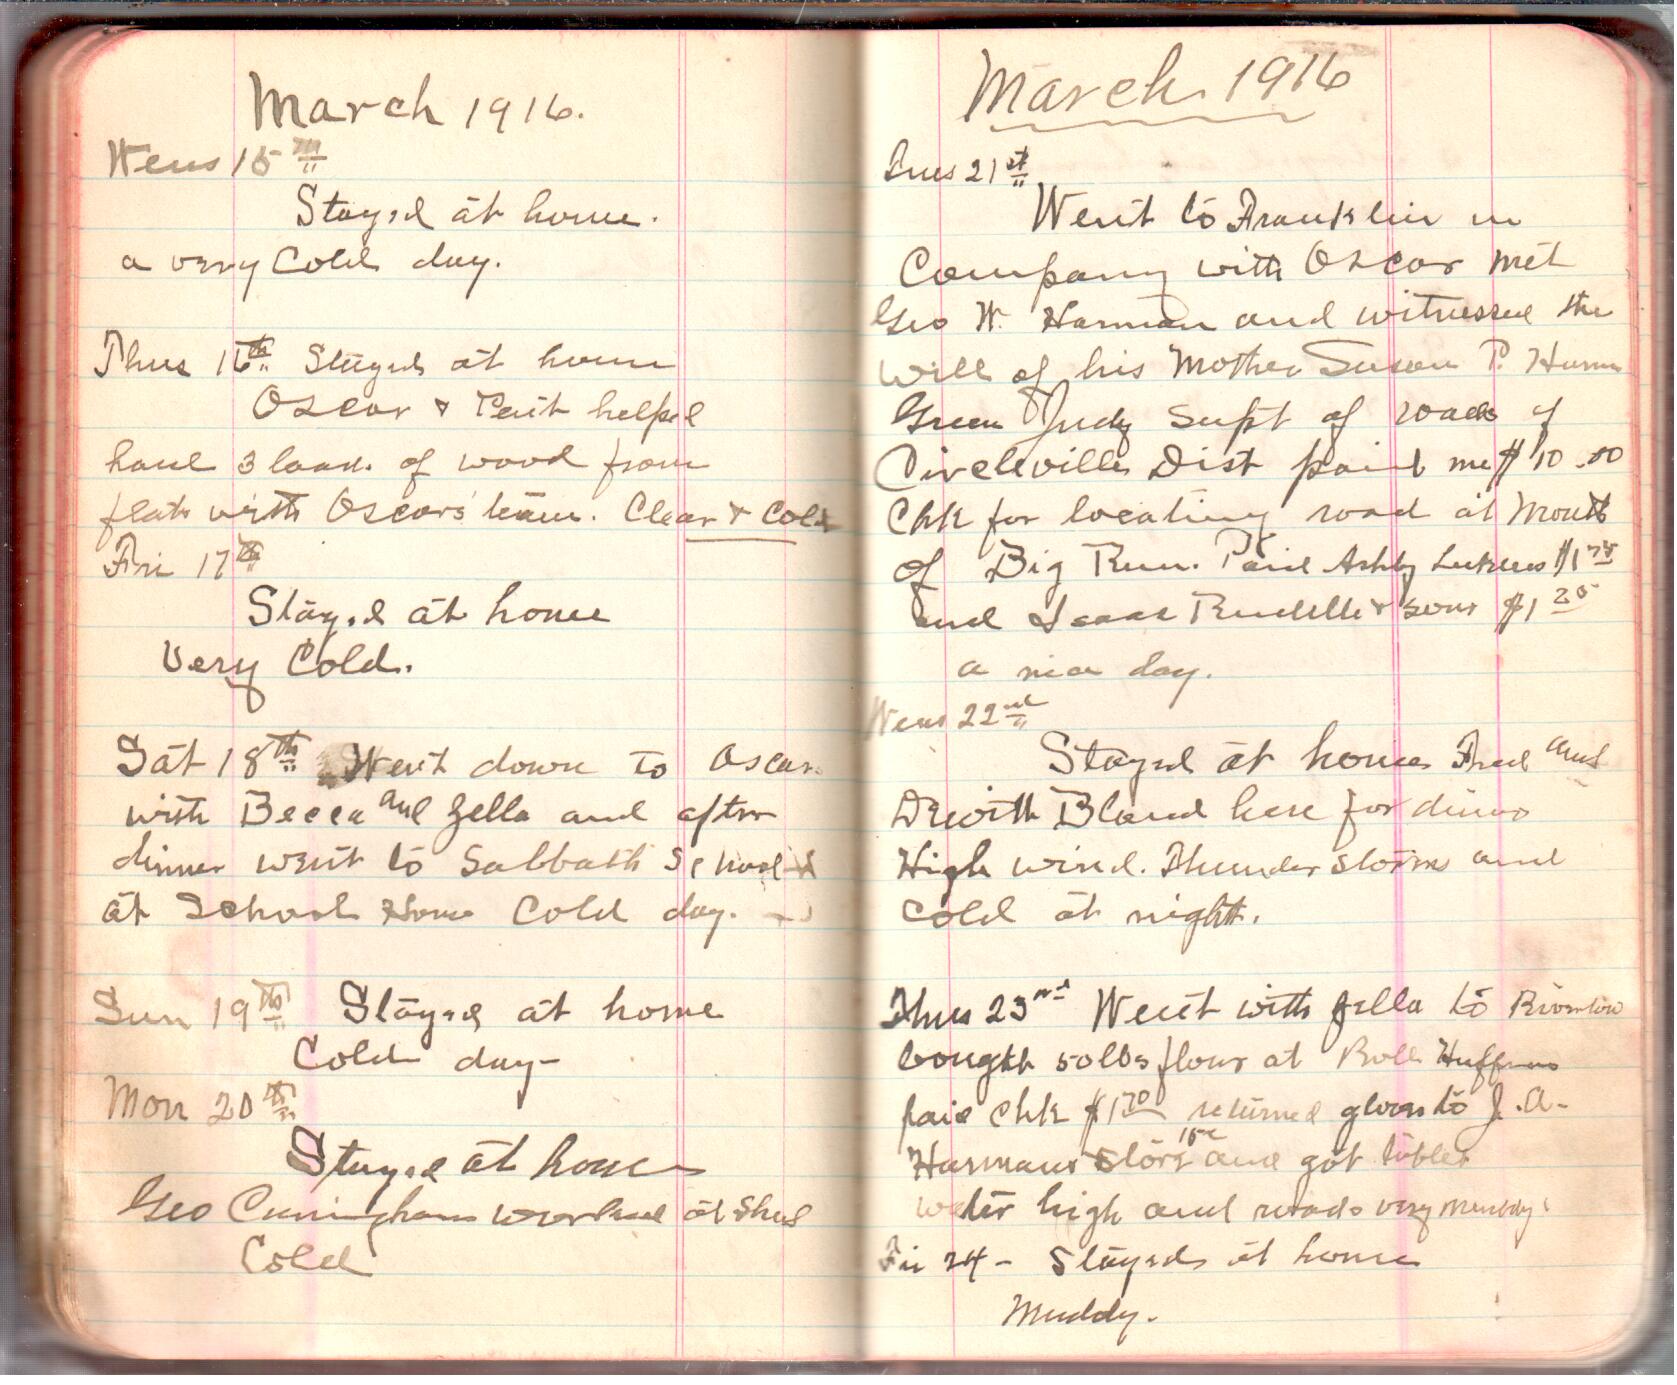 March 1916.
Wens 15th
Stayed at home.
a very Cold day.
Thus 16th Stayed at home
Oscar & Pent helped
haul 3 loads of wood from
flats with Oscars team. Clear & Cold
Fri 17th
Stayed at home
Very Cold.
Sat 18th Went down to Oscars
with Becca and Zella and after
dinner went to Sabbath School
at School House Cold day.
Sun 19th Stayed at home
Cold day-
Mon 20th
Stayed at home
Geo Cuningham worked at Shed
Cold
March 1916
Tues 21st
Went to Franklin in
Company with Oscar met
Geo W. Harman and witnessed the
will of his Mother Susan P. Harman
Green Judy Supt of roads of
Circleville Dist paid me $10.00
Chk for locating road at Mouth
of Big Run. Paid Ashby $1 75
and Isaac Ruddle & sons $1 25
a nice day.
Wens 22nd
Stayed at home Fred and
Dewith Bland here for dinner
High wind. Thunder storms and
Cold at night.
Thus 23rd Went with Zella to Riverton
bought 50 lbs flour at Huffmans
paid Chk $1 70 returned gloves to J.A.
Harmans Store and got 15c
water high and roads very muddy.
Fri 24- Stayed at home
Muddy.